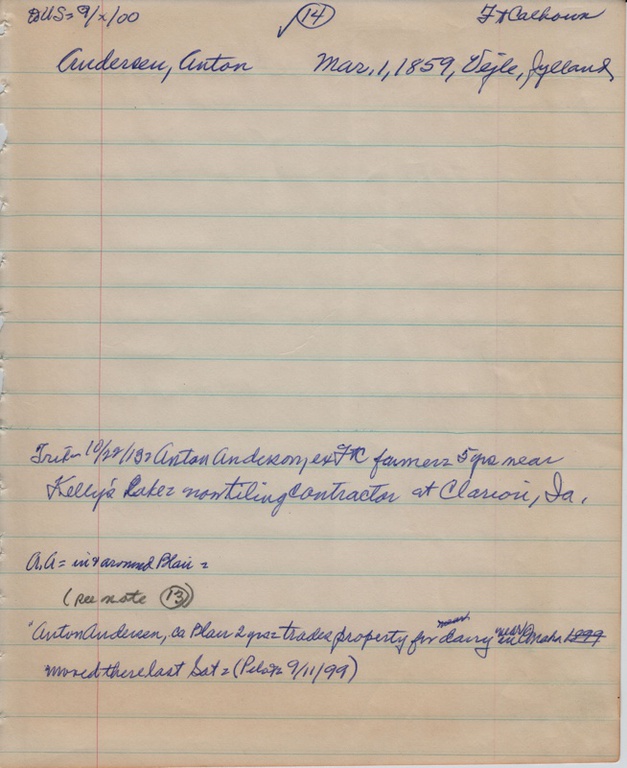 DUS= 9/x/00 ✓ (14) Ft Calhoun
Andersen, Anton Mar. 1, 1859, Vejle, Jylland
Trib= 10/22/13= Anton Anderson, ex Ft C farmer= 5 yrs near
Kelly's Lake= now tiling contractor at Clarion, Ia.
A.A= in & around Blair=
(see note (13))
"Anton Andersen, ca Blair 2 yrs= trades property for dairy near Omaha
moved there last Sat= (Pilot= 9/11/99)